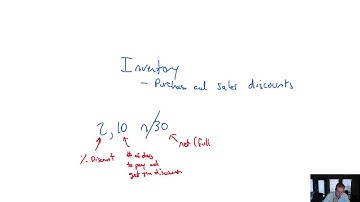 Inventory
- Purchase and sales discounts
2, 10 n/30
% Discount
# of days
to pay and
get you discount
net (full